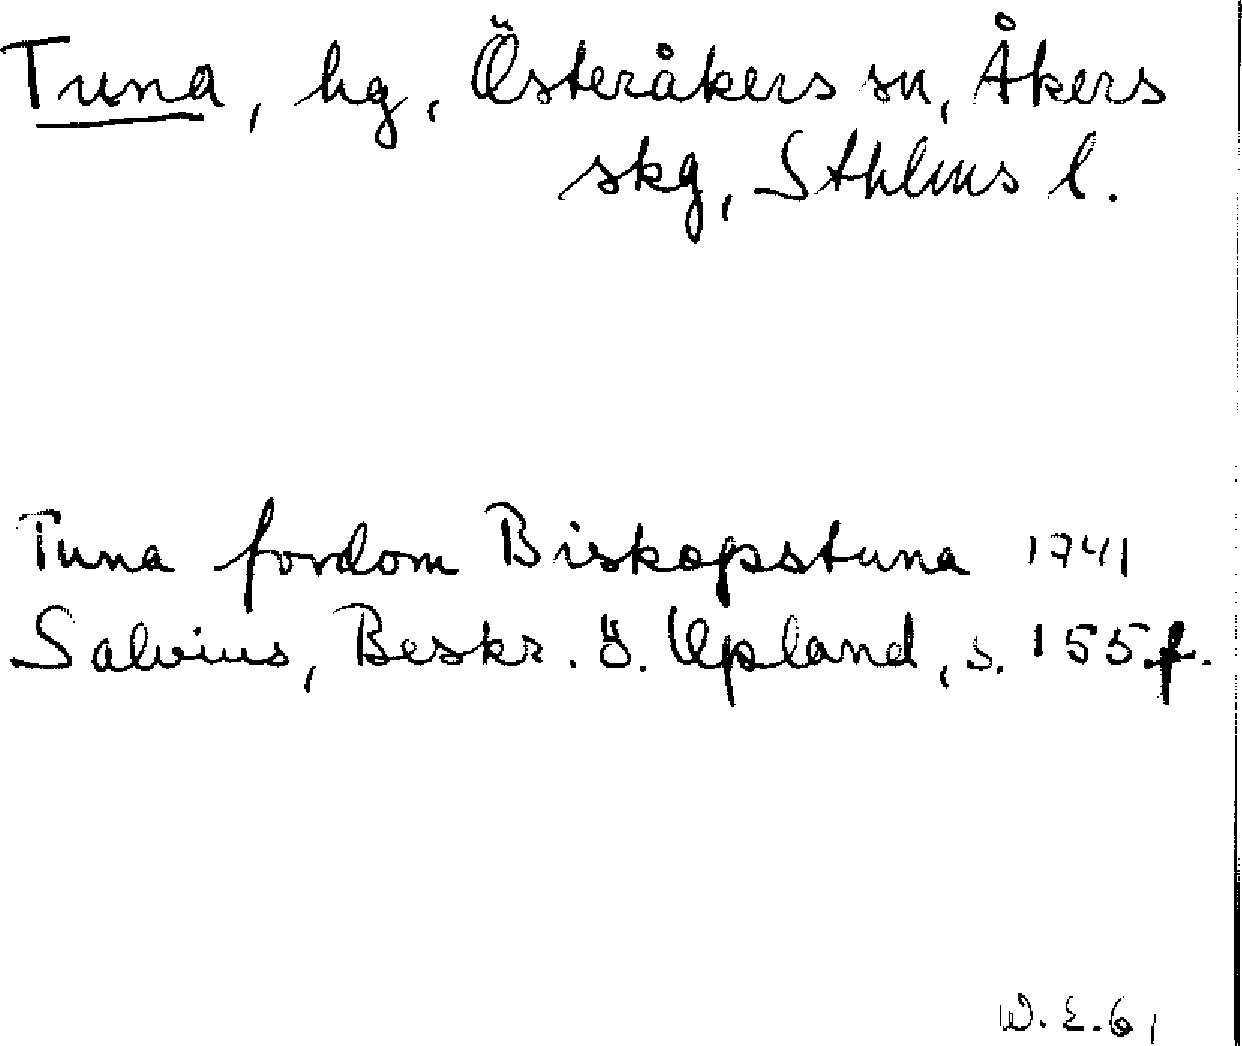 Tuna, hg, Österåkers sn, Åkers
skg, Sthlms l.
Tuna fordom Biskopstuna 1741
Salvius, Beskr. ö. Upland, s. 155 f.
W. E. 6,